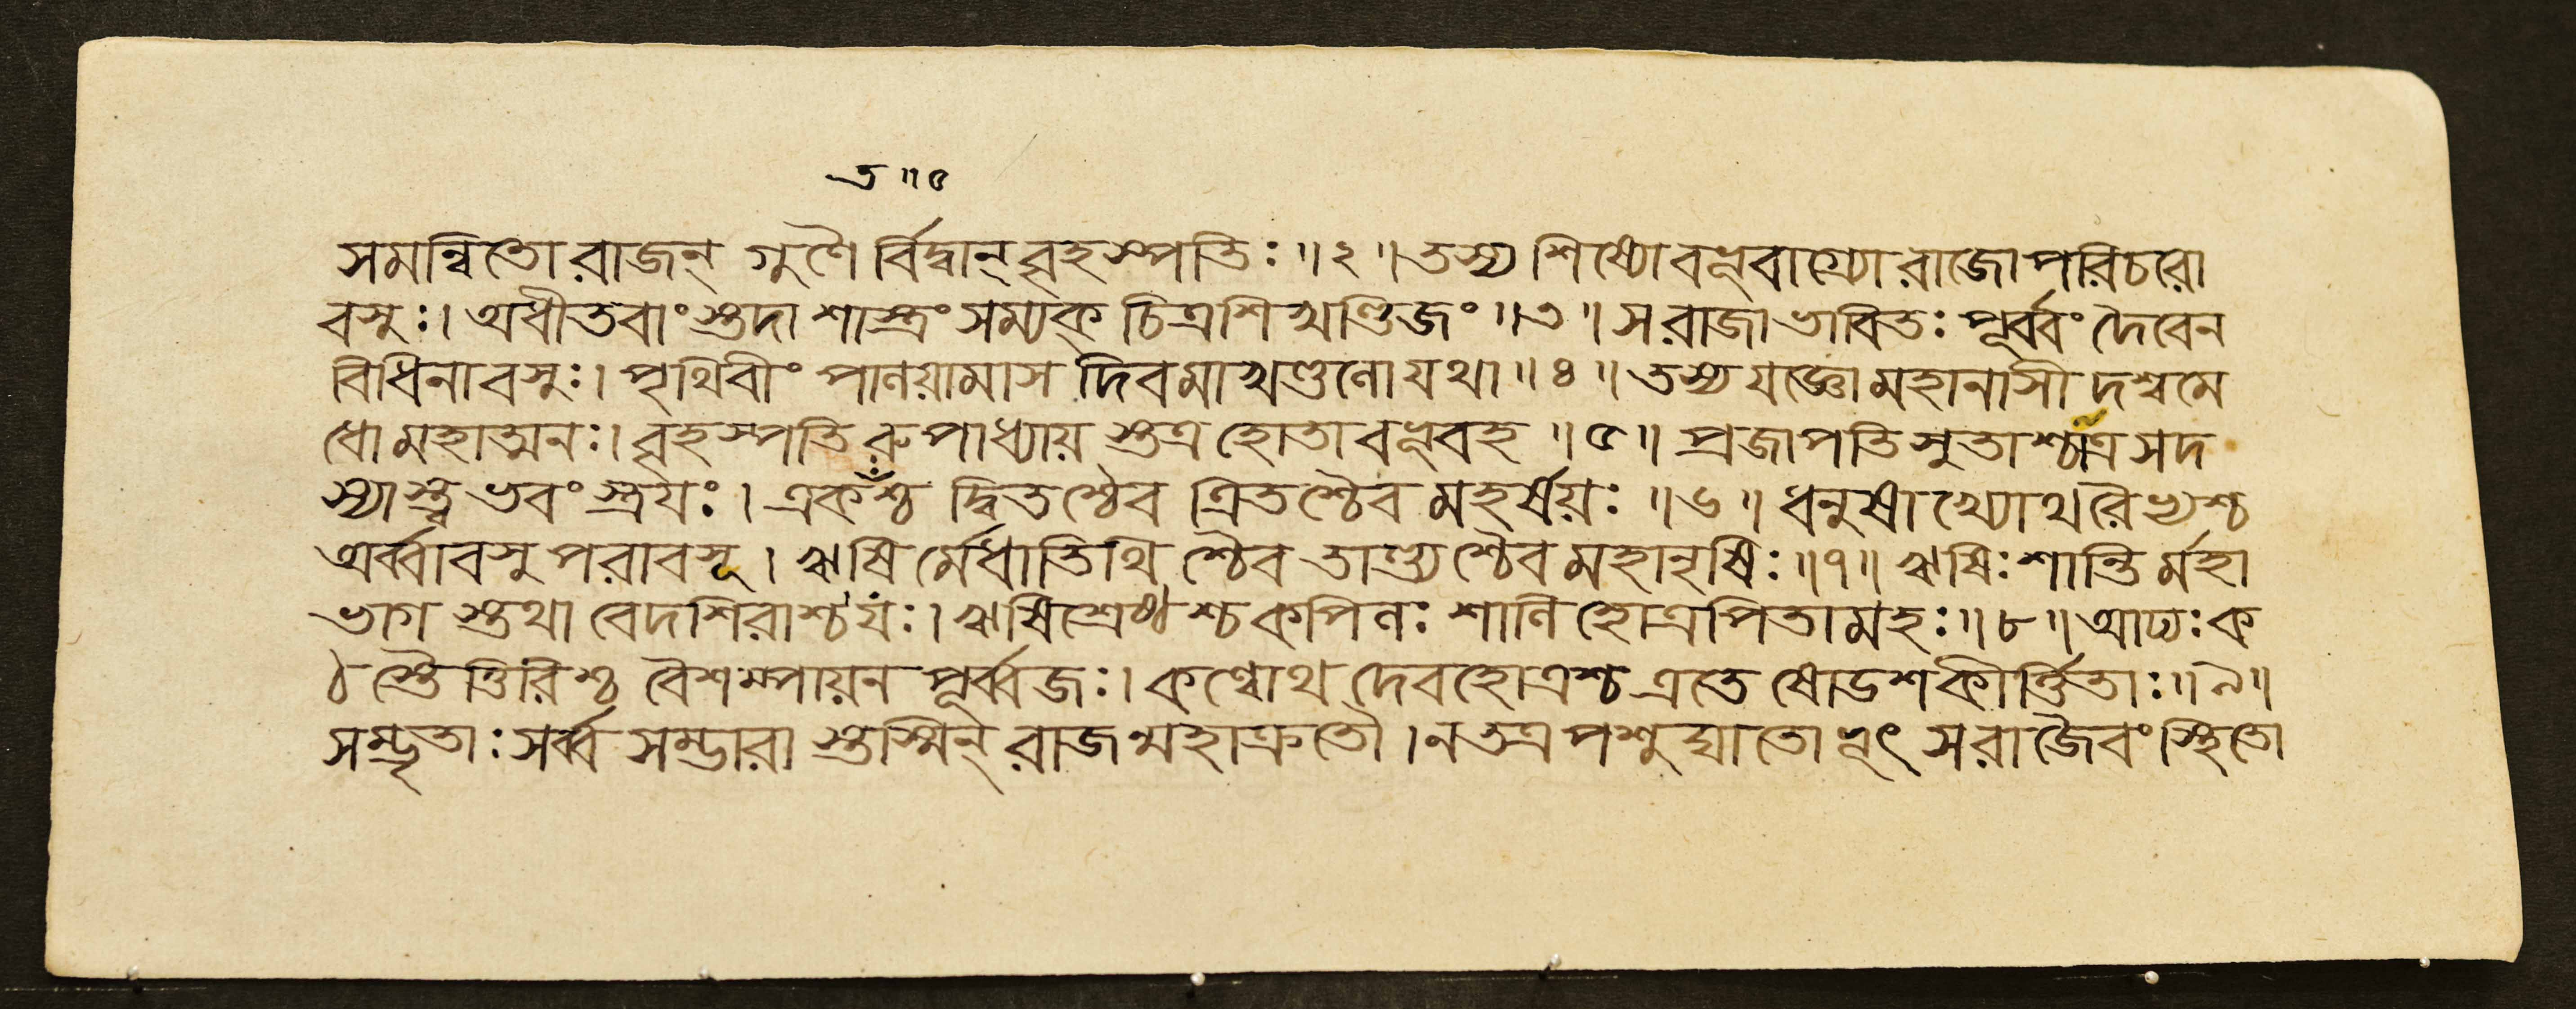 ত ॥ ৫
সমন্বিতো রাজন্ গুণৈ র্বিদ্বান্ বৃহস্পতিঃ ॥ ২ ॥ তস্য শিষ্যো বভূবাগ্র্যো রাজোপরিচরো
বসুঃ। অধীতবাংস্তদা শাস্ত্রং সম্যক্ চিত্রশিখণ্ডিজং ॥ ৩ ॥ স রাজা ভাবিতঃ পূর্ব্বং দৈবেন
বিধিনা বসুঃ। পৃথিবীং পালয়ামাস দিবমাখণ্ডলো যথা ॥ ৪ ॥ তস্য যজ্ঞো মহানাসীদশ্বমে
ধো মহাত্মনঃ। বৃহস্পতিরুপাধ্যায়স্তত্র হোতা বভূবহ ॥ ৫ ॥ প্রজাপতিসুতাশ্চাত্র সদ
স্যাস্ত্বভবংস্ত্রয়ঃ। একতশ্চ দ্বিতশ্চৈব ত্রিতশ্চৈব মহর্ষয়ঃ ॥ ৬ ॥ ধনুষাখ্যোথ রৈভ্যশ্চ
অর্ব্বাবসুপরাবসূ। ঋষির্মেধাতিথিশ্চৈব তাণ্ড্যশ্চৈব মহানৃষিঃ ॥ ৭ ॥ ঋষিঃ শান্তির্মহা
ভাগস্তথা বেদশিরাশ্চ যঃ। ঋষিশ্রেষ্ঠশ্চ কপিলঃ শালিহোত্রপিতামহঃ ॥ ৮ ॥ আদ্যঃ ক
ঠস্তৈত্তিরিশ্চ বৈশম্পায়নপূর্ব্বজঃ। কণ্বোথ দেবহোত্রশ্চ এতে ষোডশ কীর্ত্তিতাঃ ॥ ৯ ॥
সম্ভৃতাঃ সর্ব্বসম্ভারাস্তস্মিন্ রাজন্মহাক্রতৌ। ন তত্র পশুঘাতোভূৎ স রাজৈবং স্থিতো